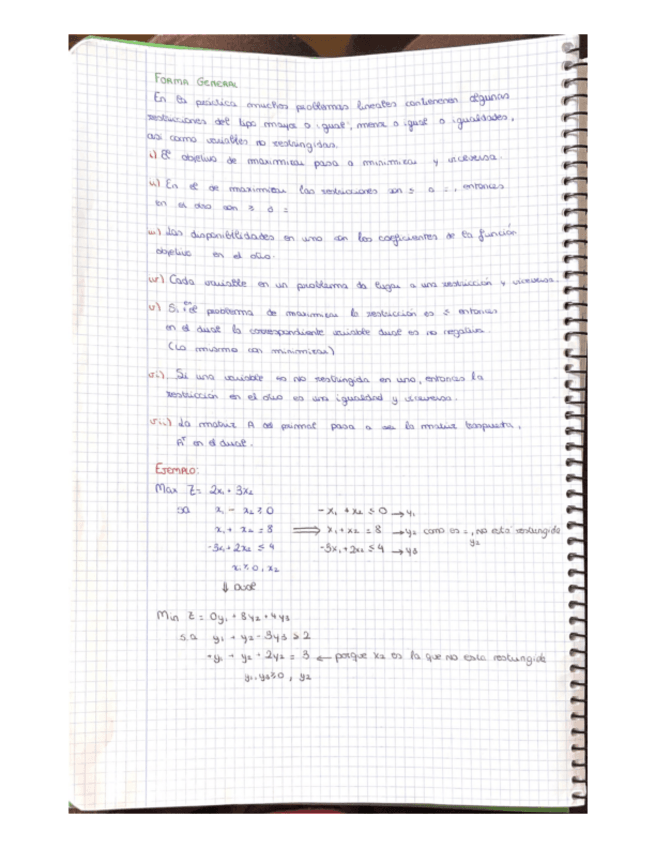 FORMA GENERAL
En la práctica muchos problemas lineales contienen algunas
restricciones del tipo mayor o igual, menor o igual o igualdades,
así como variables no restringidas.
i) El objetivo de maximizar pasa a minimizar y viceversa.
ii) En el de maximizar las restricciones son ≤ o =, entonces
en el dual son ≥ ó =
iii) Las disponibilidades en uno son los coeficientes de la función
objetivo en el otro.
iv) Cada variable en un problema da lugar a una restricción y viceversa.
v) Si en el problema de maximizar la restricción es ≤ entonces
en el dual la correspondiente variable dual es no negativa.
(Lo mismo con minimizar)
vi) Si una variable es no restringida en uno, entonces la
restricción en el otro es una igualdad y viceversa.
vii) La matriz A del primal pasa a ser la matriz traspuesta,
Aᵀ en el dual.
EJEMPLO:
Max Z = 2x₁ + 3x₂
s.a x₁ - x₂ ≥ 0 -x₁ + x₂ ≤ 0 → y₁
x₁ + x₂ = 8 ⟹ x₁ + x₂ = 8 → y₂ como es =, no está restringida y₂
-3x₁ + 2x₂ ≤ 4 -3x₁ + 2x₂ ≤ 4 → y₃
x₁ ≥ 0, x₂
⇓ Dual
Min Z = 0y₁ + 8y₂ + 4y₃
s.a y₁ + y₂ - 3y₃ ≥ 2
+y₁ + y₂ + 2y₂ = 3 ← porque x₂ es la que no está restringida
y₁, y₃ ≥ 0, y₂